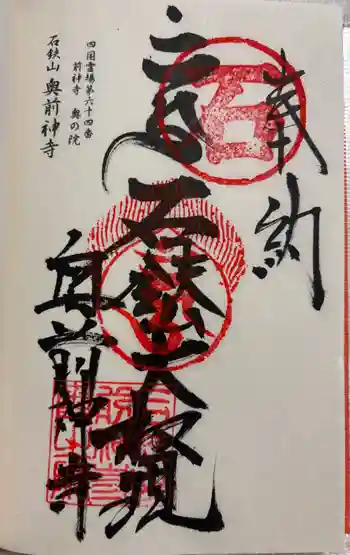 奉納
石
三体
石鈇大権現
奥前神寺
四国霊場第六十四番
前神寺 奥の院
石鈇山 奥前神寺